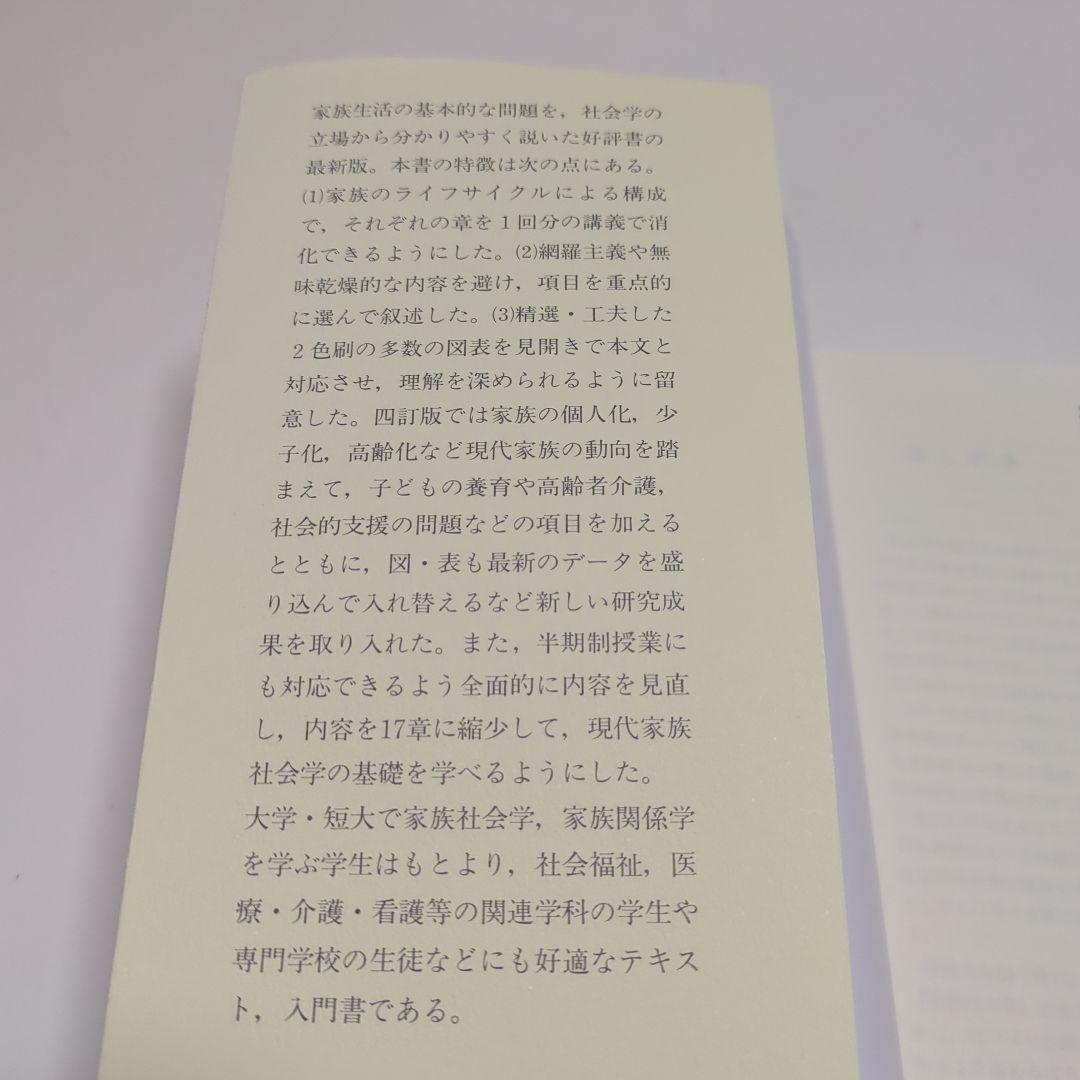 家族生活の基本的な問題を，社会学の
立場から分かりやすく説いた好評書の
最新版。本書の特徴は次の点にある。
(1)家族のライフサイクルによる構成
で，それぞれの章を1回分の講義で消
化できるようにした。(2)網羅主義や無
味乾燥的な内容を避け，項目を重点的
に選んで叙述した。(3)精選・工夫した
2色刷の多数の図表を見開きで本文と
対応させ，理解を深められるように留
意した。四訂版では家族の個人化，少
子化，高齢化など現代家族の動向を踏
まえて，子どもの養育や高齢者介護，
社会的支援の問題などの項目を加える
とともに，図・表も最新のデータを盛
り込んで入れ替えるなど新しい研究成
果を取り入れた。また，半期制授業に
も対応できるよう全面的に内容を見直
し，内容を17章に縮少して，現代家族
社会学の基礎を学べるようにした。
大学・短大で家族社会学，家族関係学
を学ぶ学生はもとより，社会福祉，医
療・介護・看護等の関連学科の学生や
専門学校の生徒などにも好適なテキス
ト，入門書である。